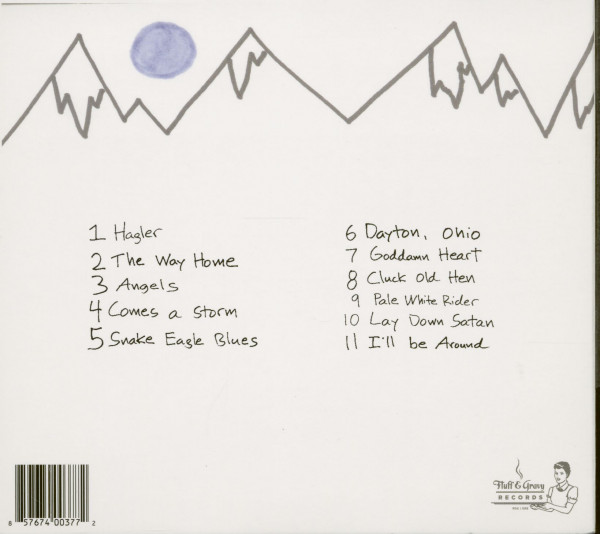 1 Hagler
2 The Way Home
3 Angels
4 Comes a storm
5 Snake Eagle Blues
6 Dayton, Ohio
7 Goddamn Heart
8 Cluck Old Hen
9 Pale White Rider
10 Lay Down Satan
11 I'll be Around
8 57674 00377 2
Fluff & Gravy
RECORDS